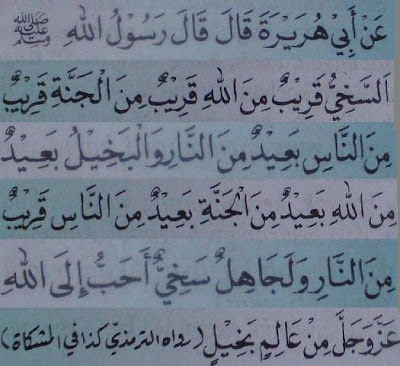 عَنْ أَبِيْ هُرَيْرَةَ قَالَ قَالَ رَسُوْلُ اللهِ ﷺ
اَلسَّخِيُّ قَرِيْبٌ مِنَ اللهِ قَرِيْبٌ مِنَ الْجَنَّةِ قَرِيْبٌ
مِنَ النَّاسِ بَعِيْدٌ مِنَ النَّارِ وَالْبَخِيْلُ بَعِيْدٌ
مِنَ اللهِ بَعِيْدٌ مِنَ الْجَنَّةِ بَعِيْدٌ مِنَ النَّاسِ قَرِيْبٌ
مِنَ النَّارِ وَلَجَاهِلٌ سَخِيٌّ أَحَبُّ إِلَى اللهِ
عَزَّوَجَلَّ مِنْ عَالِمٍ بَخِيْلٍ (رواه الترمذيّ كذا في المشكاة)